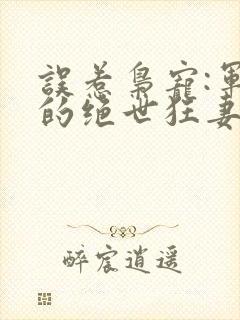 誤惹梟寵:軍
的绝世狂妻
醉宸逍遥